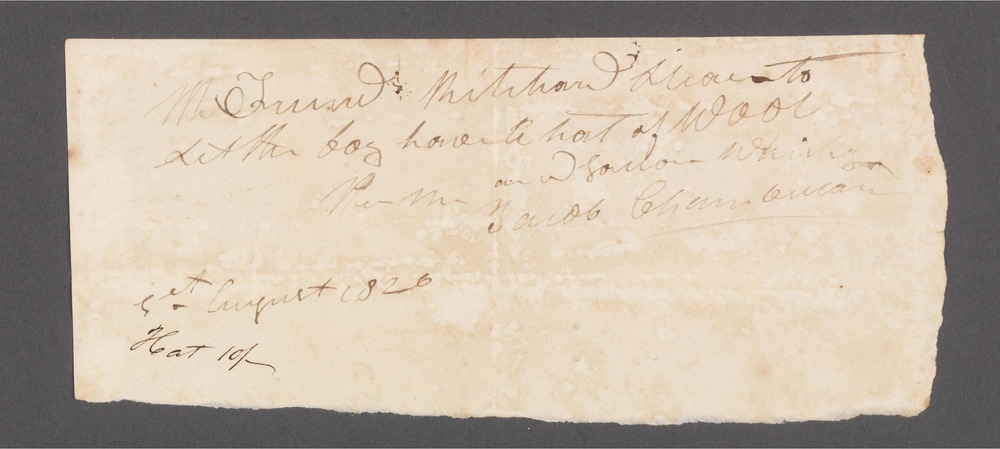 Mr Friend Mitchard Please to
Let the boy have A hat of Wool
and Gallon Whisky
Per Me Jacob
5th August 1826
Hat 10/-